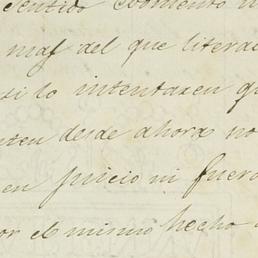 sentido
mas del que litera
si lo intentaren q
nten desde ahora no
en juicio ni fuera
or el mismo hecho